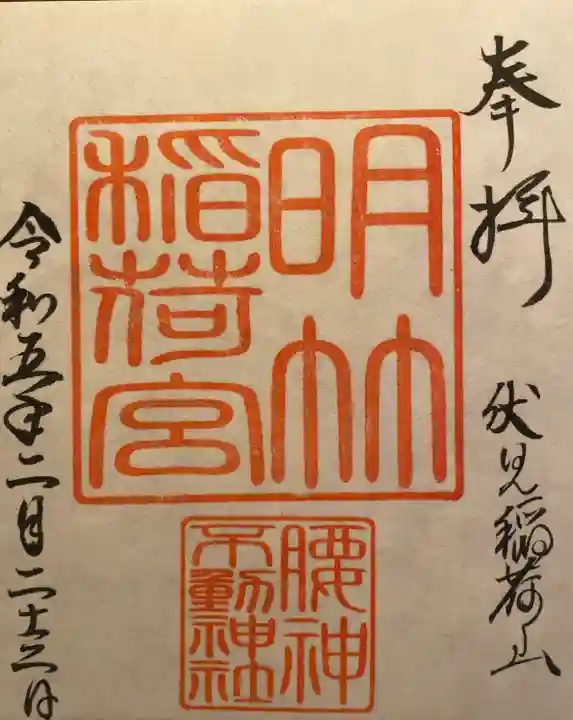 奉拝
伏見稲荷山
明林
稲荷宮
腰神
不動神社
令和五年二月二十三日